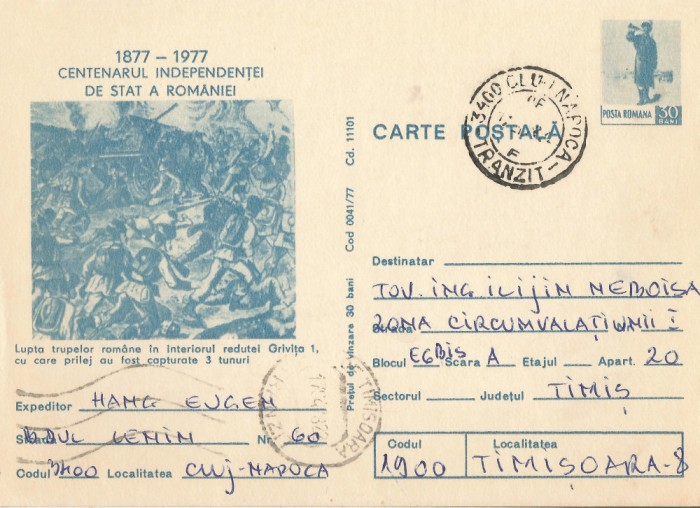 1877 – 1977
CENTENARUL INDEPENDENȚEI
DE STAT A ROMÂNIEI
Lupta trupelor române în interiorul redutei Grivița 1,
cu care prilej au fost capturate 3 tunuri
Expeditor HAMG EUGEN
BDUL LENIN Nr. 60
Codul 3400 Localitatea CLUJ-NAPOCA
Prețul de vînzare 30 bani Cod 0041/77 Cd. 11101
CARTE POȘTALĂ
3400 CLUJ-NAPOCA
TRANZIT
POSTA ROMANA 30 BANI
TIMIȘOARA
Destinatar
TOV. ING. ILIJIN NEBOISA
Strada ZONA CIRCUMVALAȚIUNII I
Blocul EG BIS Scara A Etajul Apart. 20
Sectorul Județul TIMIȘ
Codul Localitatea
1900 TIMIȘOARA-8